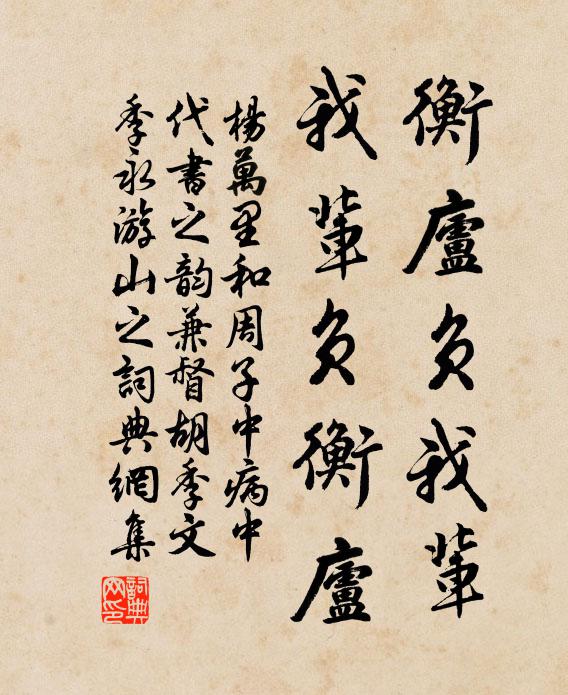 衡廬負我輩
我輩負衡廬
楊萬里和周子中病中
代書之韵兼督胡季文
季永游山之詞典網集
詞典
网印